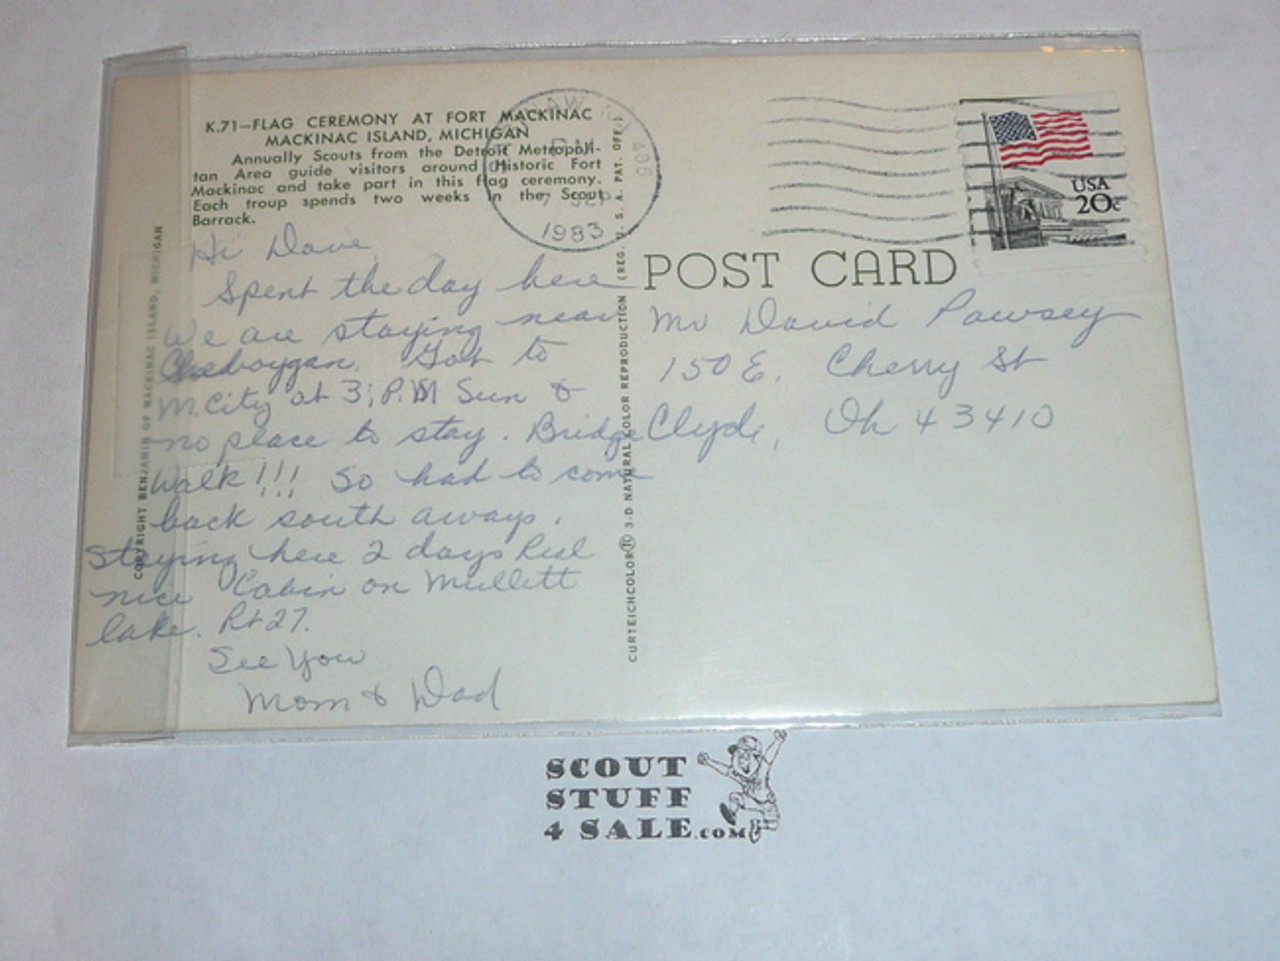 K.71—FLAG CEREMONY AT FORT MACKINAC
MACKINAC ISLAND, MICHIGAN
Annually Scouts from the Detroit Metropoli-
tan Area guide visitors around Historic Fort
Mackinac and take part in this flag ceremony.
Each troup spends two weeks in the Scout
Barrack.
Hi Dave,
Spent the day here
We are staying near
Cheboygan. Got to
M.City at 3;P.M Sun &
no place to stay. Bridge
Walk!!! So had to come
back south aways.
Staying here 2 days Real
nice Cabin on Mullett
lake. Rt 27.
See You
Mom & Dad
COPYRIGHT BENJAMIN OF MACKINAC ISLAND, MICHIGAN
CURTEICHCOLOR® 3-D NATURAL COLOR REPRODUCTION (REG. U. S. A. PAT. OFF.)
PM
7 SEP
1983
USA
20c
POST CARD
Mr David Pawsey
150 E. Cherry St
Clyde, Oh 43410
SCOUT
STUFF
4 SALE.COM